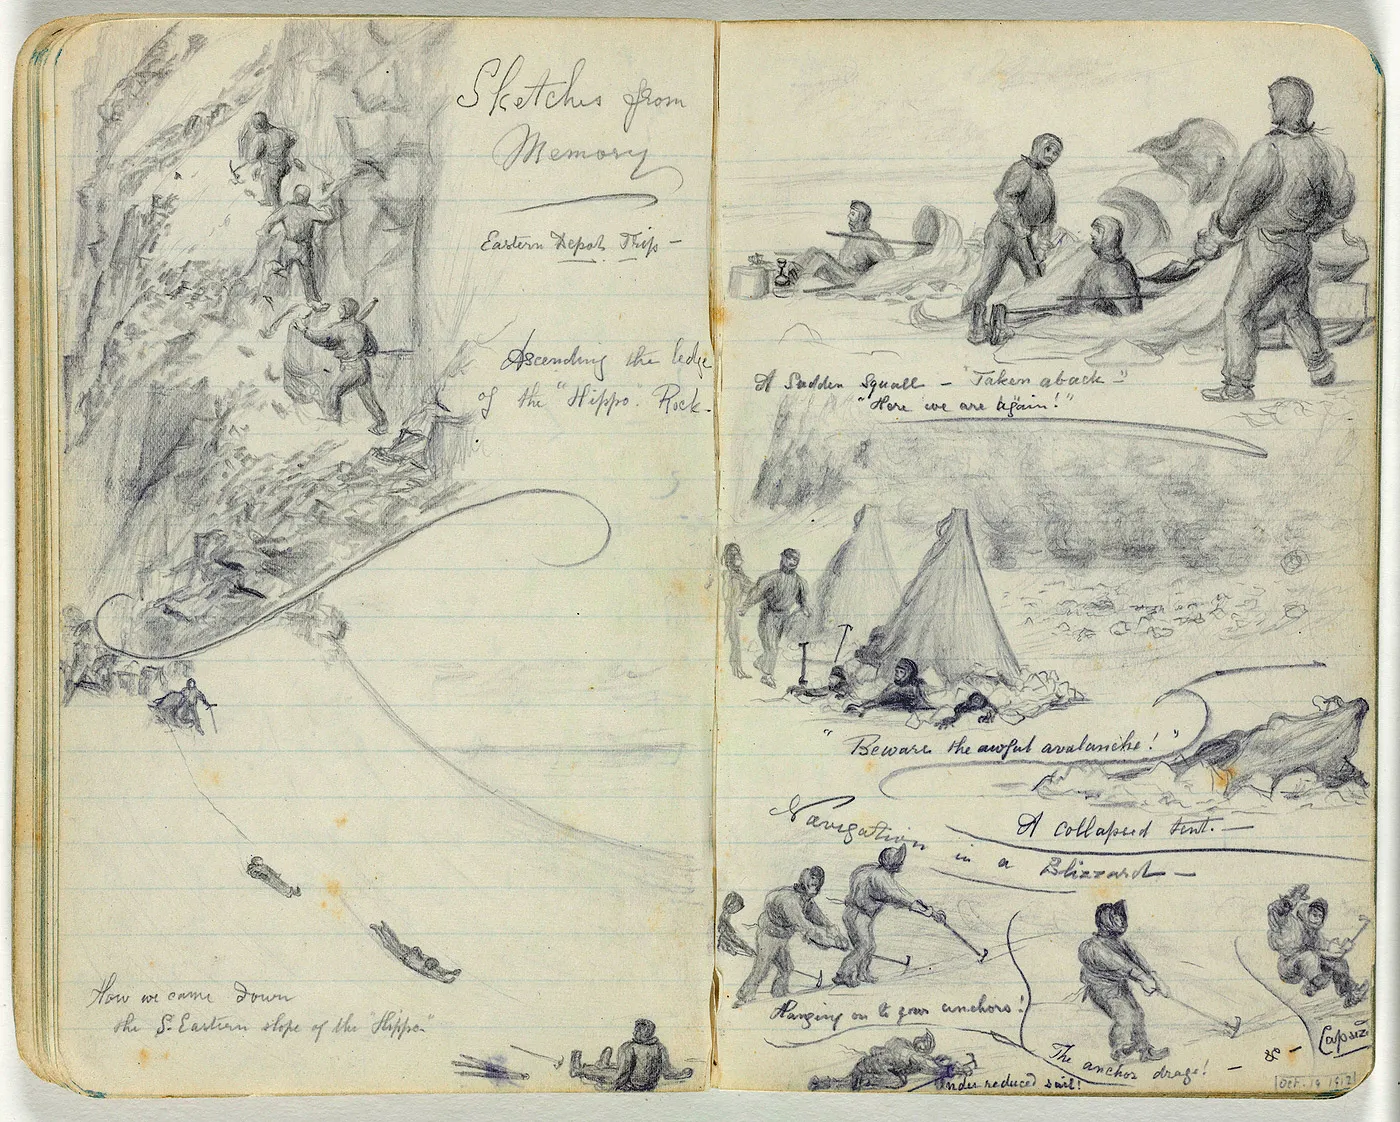 Sketches from
Memory
Eastern Depot Trip -
Ascending the ledge
of the "Hippo" Rock.
How we came down
the S. Eastern slope of the "Hippo"
A Sudden Squall - "Taken aback -"
"Here we are again!"
"Beware the awful avalanche!"
A collapsed tent. -
Navigation in a Blizzard -
Hanging on to your anchors!
The anchor drags! -
& -
Capsize
Under reduced sail!
Oct. 19 1912